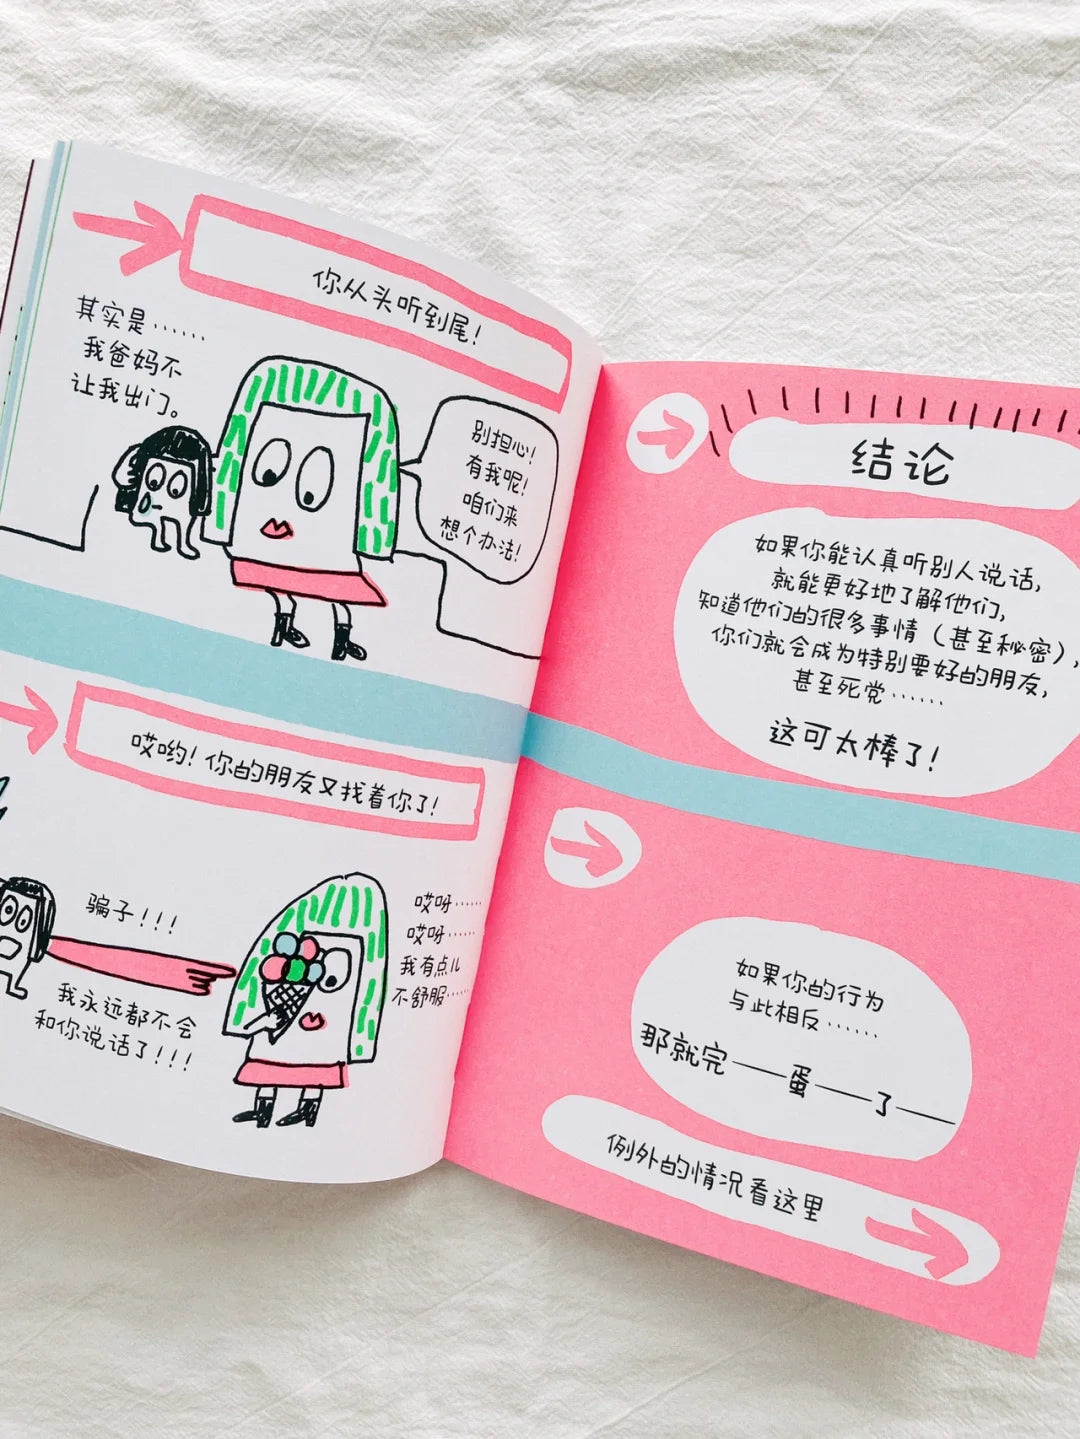 你从头听到尾！
其实是……
我爸妈不
让我出门。
别担心！
有我呢！
咱们来
想个办法！
哎哟！你的朋友又找着你了！
骗子！！！
我永远都不会
和你说话了！！！
哎呀……
哎呀……
我有点儿
不舒服……
结论
如果你能认真听别人说话，
就能更好地了解他们，
知道他们的很多事情（甚至秘密），
你们就会成为特别要好的朋友，
甚至死党……
这可太棒了！
如果你的行为
与此相反……
那就完——蛋——了——
例外的情况看这里